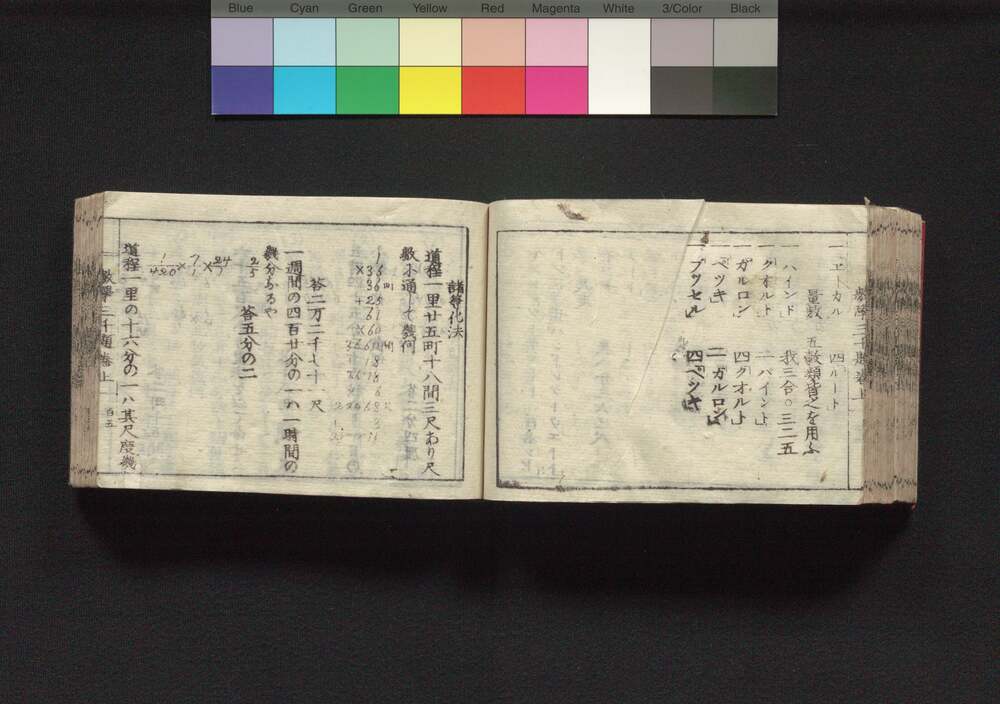 Blue Cyan Green Yellow Red Magenta White 3/Color Black
一エーカル 四ルート
量数 五 穀類皆之を用ふ
一パインド 我三合〇三二五
一クオルト 二パイント
一ガルロン 四クオルト
一ペッキ 二ガルロン
一ブツセル 四ペツキ
諸等化法
道程一里廿五町十八間三尺あり尺
数に通して幾何
答二万二千七十一尺
一週間の四百廿分の一ハ一時間の
幾分なるや
答五分の二
2/5
1/420×7/1×24/
道程一里の十六分の一ハ其尺度幾
数学三千題巻上 百五